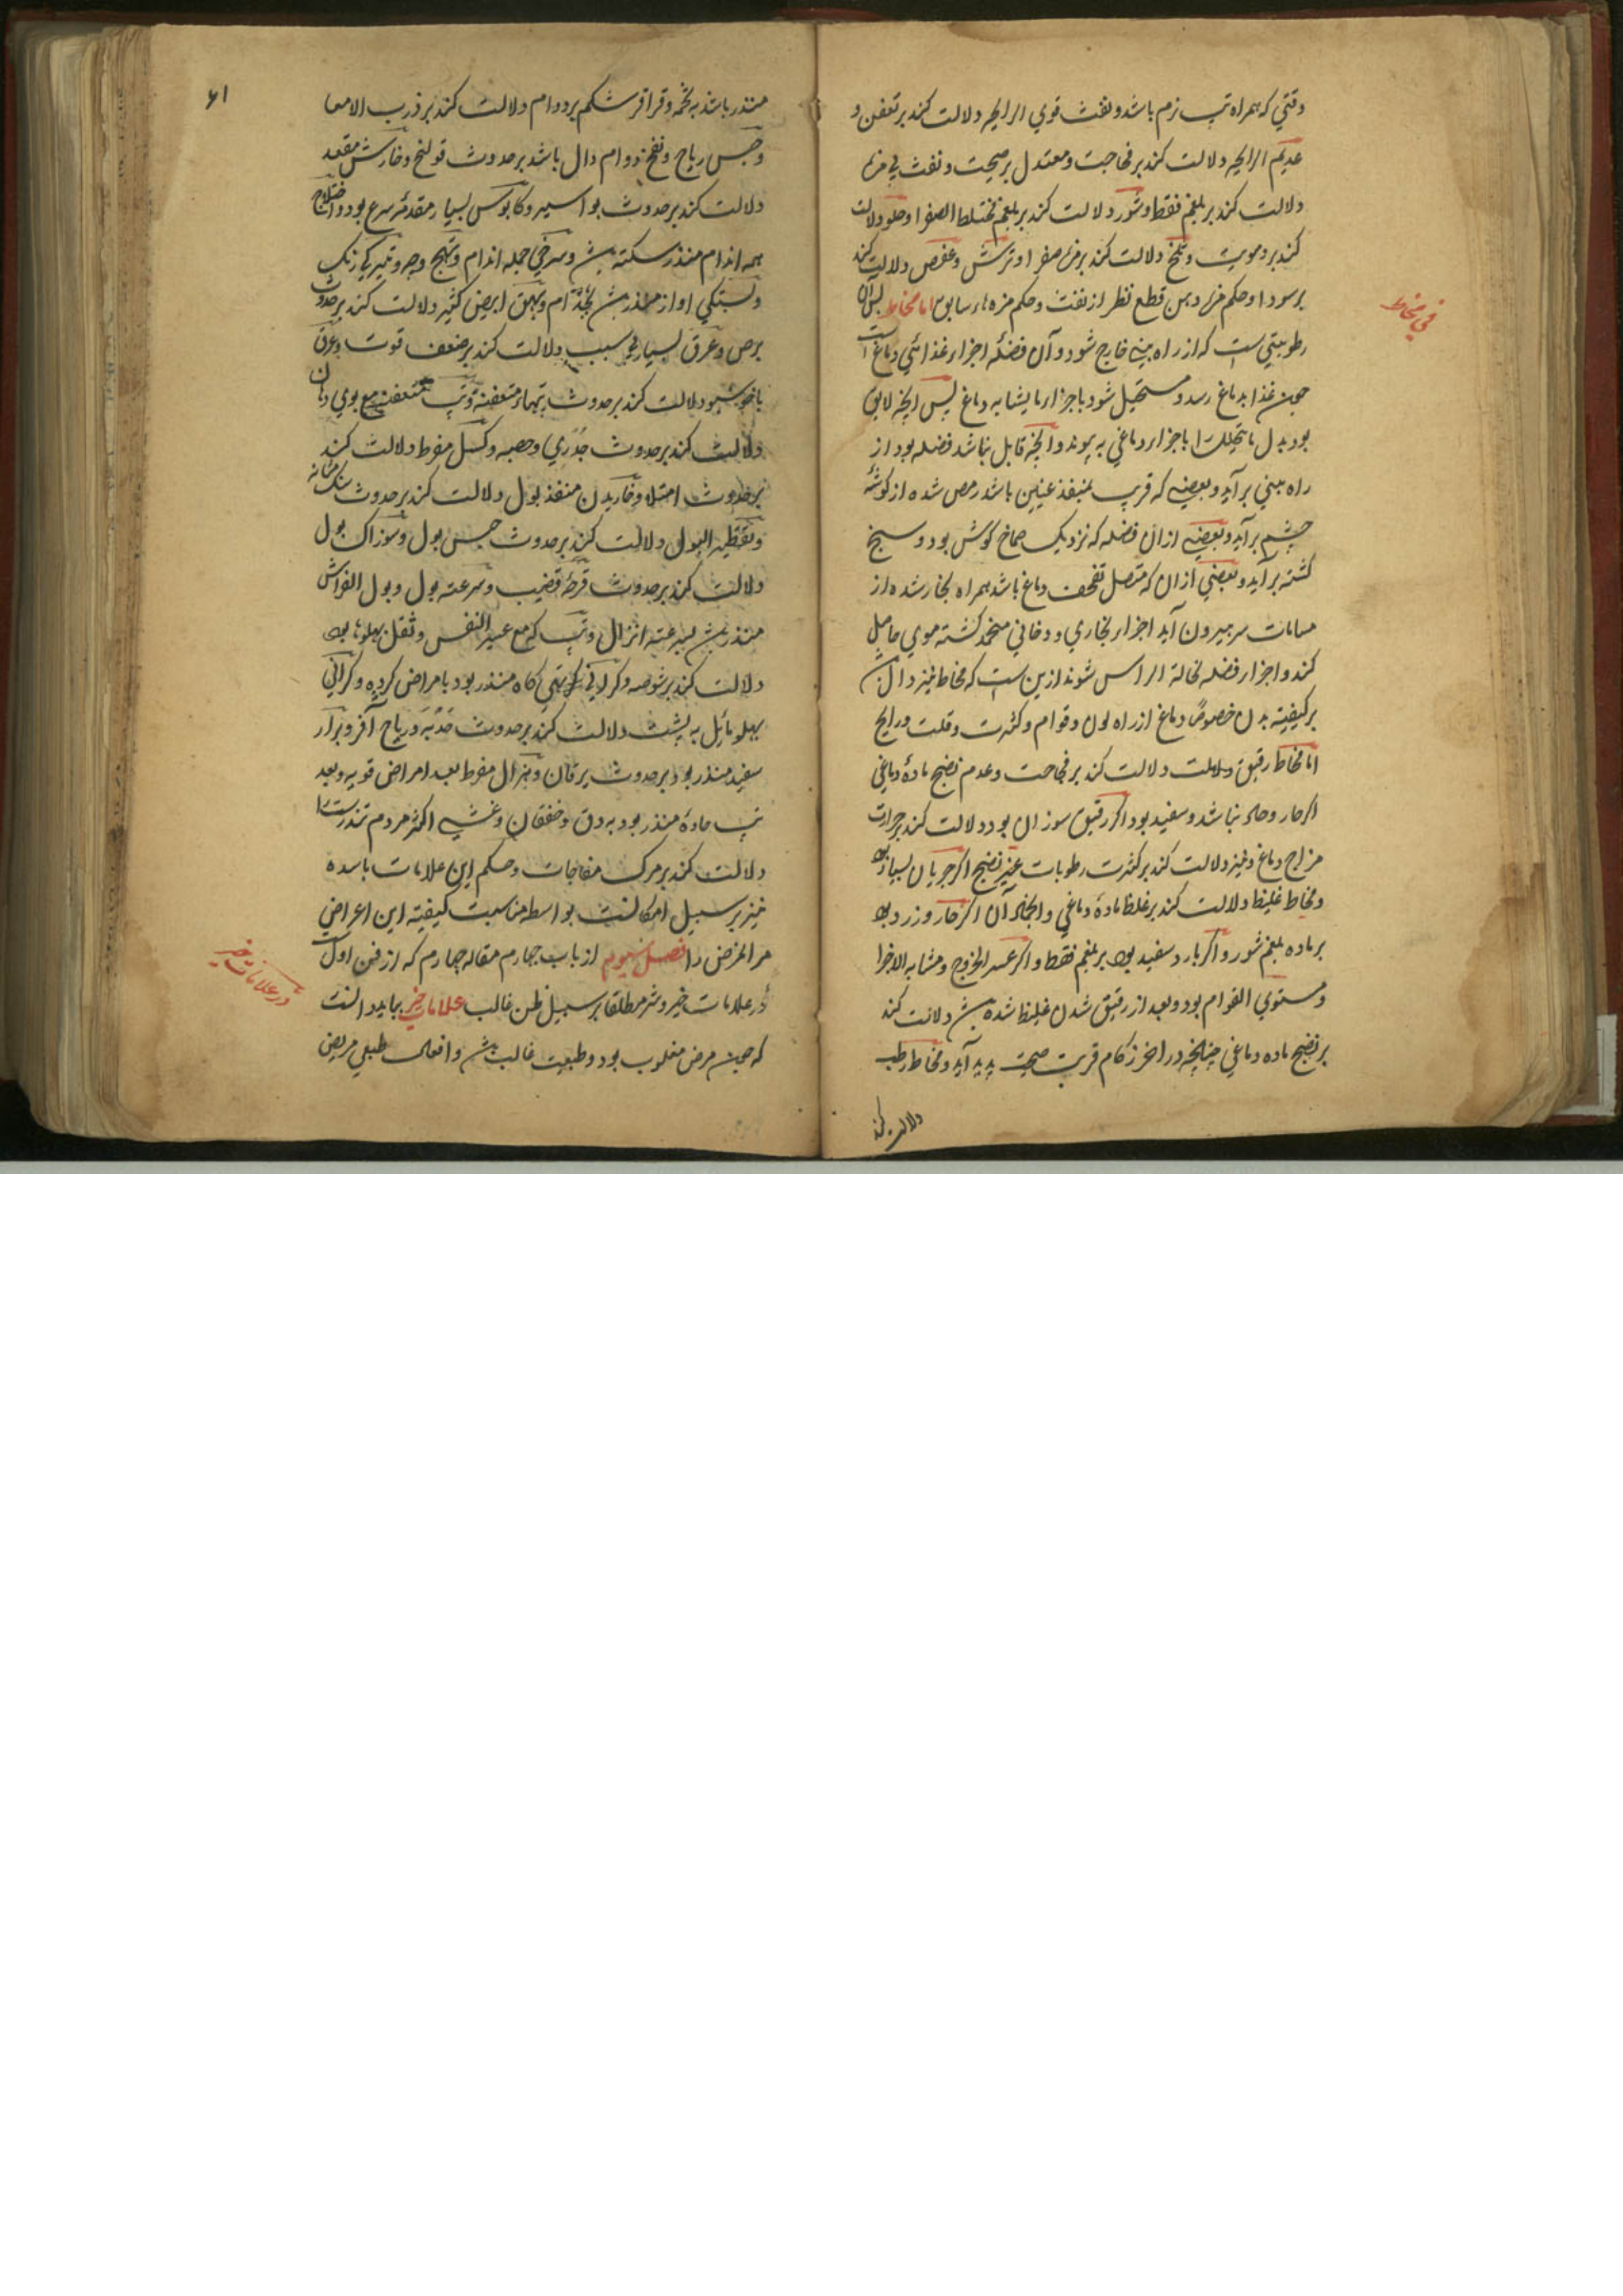 وقتي که همراه تپ نرم باشد ونفث قوي الرایحه دلالت کند بر تعفن و
عدیم الرایحه دلالت کند بر فجاجت ومعتدل بر صحت ونفث بي مزه
دلالت کند بر بلغم فقط وشور دلالت کند بر بلغم مختلط الصفرا وحلو دلالت
کند بر دمویت وتلخ دلالت کند بر مزه صفرا وترش وعفص دلالت کند
بر سودا وحکم مزه دهن قطع نظر از نفث وحکم مزه هاء سابق اما مخاط پس آن
في مخاط
رطوبتي است که از راه بیني خارج شود وآن فضلهٔ اجزاء غذائي دماغ است
چون غذا بدماغ رسد ومستحیل شود باجزاء مایشابه دماغ پس انچه لایق
بود بدل مایتحلل را باجزاء دماغي به پیوندد وانچه قابل نباشد فضله بود از
راه بیني برآید وبعضي که قریب بمنفذ عینین باشد رمص شده از کوشهٔ
چشم برآید وبعضي ازان فضله که نزدیک صماخ کوش بود وسخ
کشته برآید وبعضي ازان که متصل تقحف دماغ باشد همراه بخار شده از
مسامات سر بیرون آید اجزاء بخاري ودخاني منجمد کشته موي حاصل
کند واجزاء فضله نخالة الراس شوند ازین است که مخاط نیز دال
بر کیفیته بدن خصوصًا دماغ از راه لون وقوام وکثرت وقلت ورایحه
اما مخاط رقیق دلالت کند بر فجاجت وعدم نضج مادهٔ دماغي
اکر حار وحاد نباشد وسفید بود اکر رقیق سوزان بود دلالت کند بر حرارت
مزاج دماغ ونیز دلالت کند بر کثرت رطوبات غیر نضج اکر جریان بسیار بود
ومخاط غلیظ دلالت کند بر غلظ مادهٔ دماغي وانجماد آن اکر حار وزرد بود
بر ماده بلغم شور واکر بارد سفید بود بر بلغم فقط واکر عسر الخروج ومشابه الاجزا
ومستوي القوام بود وبعد از رقیق شدن غلیظ شده باشد دلالت کند
بر نضج ماده دماغي چنانچه در اخر زکام قرب صحت پدید آید ومخاط رطب
دلالت کند
۶۱
منذر باشد به تخمه وقراقر شکم بر دوام دلالت کند بر ذرب الامعا
وحبس ریاح ونفخ دوام دال باشد بر حدوث قولنج وخارش مقعد
دلالت کند بر حدوث بواسیر وکابوس بسیار مقدمهٔ صرع بود واختلاج
همه اندام منذر سکته باشد وسرخي جمله اندام وتهبج وجه وتیرکي رنک
وبستکي اواز منذر باشد بجذام وبهق ابیض کثیر دلالت کند بر حدوث
برص وعرق بسیار بي سبب دلالت کند بر ضعف قوت وعرق
ناخوشبو دلالت کند بر حدوث تپهاء متعفنه وتپ متعفنه مع بوي دهان
دلالت کند بر حدوث جدري وحصبه وکسل مفرط دلالت کند
بر حدوث امتلا وخاریدن منفذ بول دلالت کند بر حدوث سنک مثانه
وتقطیر البول دلالت کند بر حدوث حبس بول وسوزاک بول
دلالت کند بر حدوث قرحهٔ قضیب وسرعته بول وبول الفراش
منذر باشد بسرعته انزال وتپ که مع عسر النفس وثقل پهلوها بود
دلالت کند بر شوصه وکراني تهي کاه منذر بود بامراض کرده وکراني
پهلو مایل به پشت دلالت کند بر حدوث حدبه وریاح آفرو وبراز
سفید منذر بود بر حدوث یرقان وهزال مفرط بعد امراض قویه وبعد
تپ حاده منذر بود به دق وخفقان وغشي اکثر مردم تندرست را
دلالت کند بر مرک مفاجات وحکم این علامات باسده
نیز بر سبیل امکانست بواسطه مناسبت کیفیته این اعراض
مر المرض را فصل سیوم از باب چهارم مقاله چهارم که از فن اول
در علامات خیر وشر مطلقا بر سبیل ظن غالب علامات خیر بباید دانست
در علامات خیر
که چون مرض مغلوب بود وطبیعت غالب باشد وافعال طبعي مریض